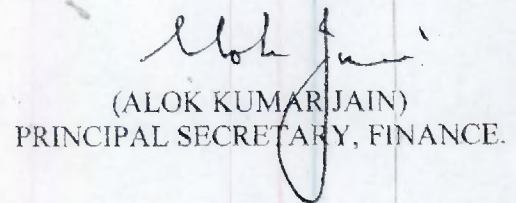 Alok Jain
(ALOK KUMAR JAIN)
PRINCIPAL SECRETARY, FINANCE.